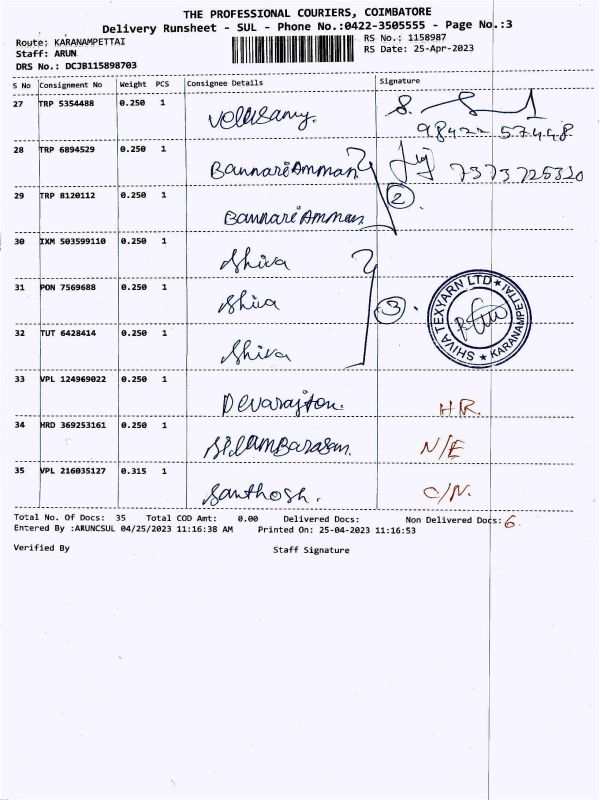 THE PROFESSIONAL COURIERS, COIMBATORE
Delivery Runsheet - SUL - Phone No.:0422-3505555 - Page No.:3
Route: KARANAMPETTAI
RS No.: 1158987
Staff: ARUN
RS Date: 25-Apr-2023
DRS No.: DCJB115898703
S No Consignment No Weight PCS Consignee Details Signature
27 TRP 5354488 0.250 1 Velusamy. 98422 57448
28 TRP 6894529 0.250 1 Bannari Amman 7373725320
29 TRP 8120112 0.250 1 Bannari Amman 2
30 IXM 503599110 0.250 1 Shiva
31 PON 7569688 0.250 1 Shiva 3 SHIVA TEXYARN LTD ★ KARANAMPETTAI ★
32 TUT 6428414 0.250 1 Shiva
33 VPL 124969022 0.250 1 Devarajton. HR
34 HRD 369253161 0.250 1 Silambarasan. N/E
35 VPL 216035127 0.315 1 Santhosh. C/N.
Total No. Of Docs: 35 Total COD Amt: 0.00 Delivered Docs: Non Delivered Docs: 6
Entered By :ARUNCSUL 04/25/2023 11:16:38 AM Printed On: 25-04-2023 11:16:53
Verified By Staff Signature